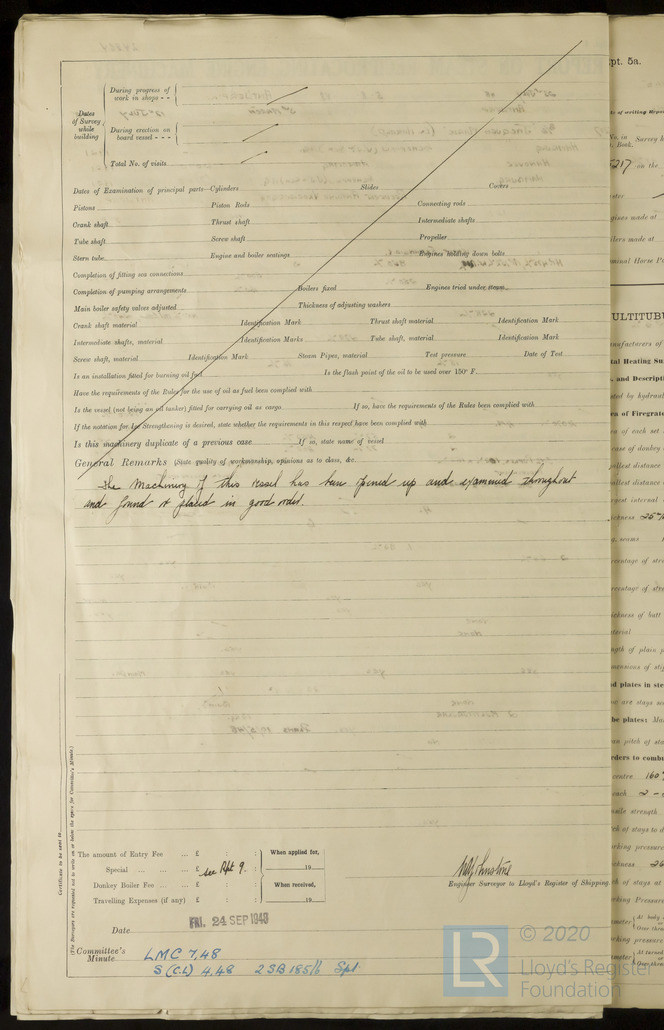 During progress of
work in shops - -
Dates
of Survey
while
building
During erection on
board vessel - - -
Total No. of visits
Dates of Examination of principal parts—Cylinders Slides Covers
Pistons Piston Rods Connecting rods
Crank shaft Thrust shaft Intermediate shafts
Tube shaft Screw shaft Propeller
Stern tube Engine and boiler seatings Engines holding down bolts
Completion of fitting sea connections
Completion of pumping arrangements Boilers fixed Engines tried under steam
Main boiler safety valves adjusted Thickness of adjusting washers
Crank shaft material Identification Mark Thrust shaft material Identification Mark
Intermediate shafts, material Identification Marks Tube shaft, material Identification Mark
Screw shaft, material Identification Mark Steam Pipes, material Test pressure Date of Test
Is an installation fitted for burning oil fuel Is the flash point of the oil to be used over 150° F.
Have the requirements of the Rules for the use of oil as fuel been complied with
Is the vessel (not being an oil tanker) fitted for carrying oil as cargo. If so, have the requirements of the Rules been complied with
If the notation for Ice Strengthening is desired, state whether the requirements in this respect have been complied with
Is this machinery duplicate of a previous case If so, state name of vessel
General Remarks (State quality of workmanship, opinions as to class, &c.
The Machinery of this vessel has been opened up and examined throughout
and found or placed in good order.
The amount of Entry Fee ... £ : : When applied for,
Special ... ... ... £ see Rpt 9. : 19
Donkey Boiler Fee ... ... £ : : When received,
Travelling Expenses (if any) £ : : 19
Engineer Surveyor to Lloyd's Register of Shipping.
Date FRI. 24 SEP 1948
Committee's
Minute
LMC 7,48
S(CL) 4,48 2SB 185 lb Spt
Certificate to be sent to
(The Surveyors are requested not to write on or below the space for Committee's Minute.)
pt. 5a.
5217 on the
ULTITUBU
LR
© 2020
Lloyd's Register
Foundation